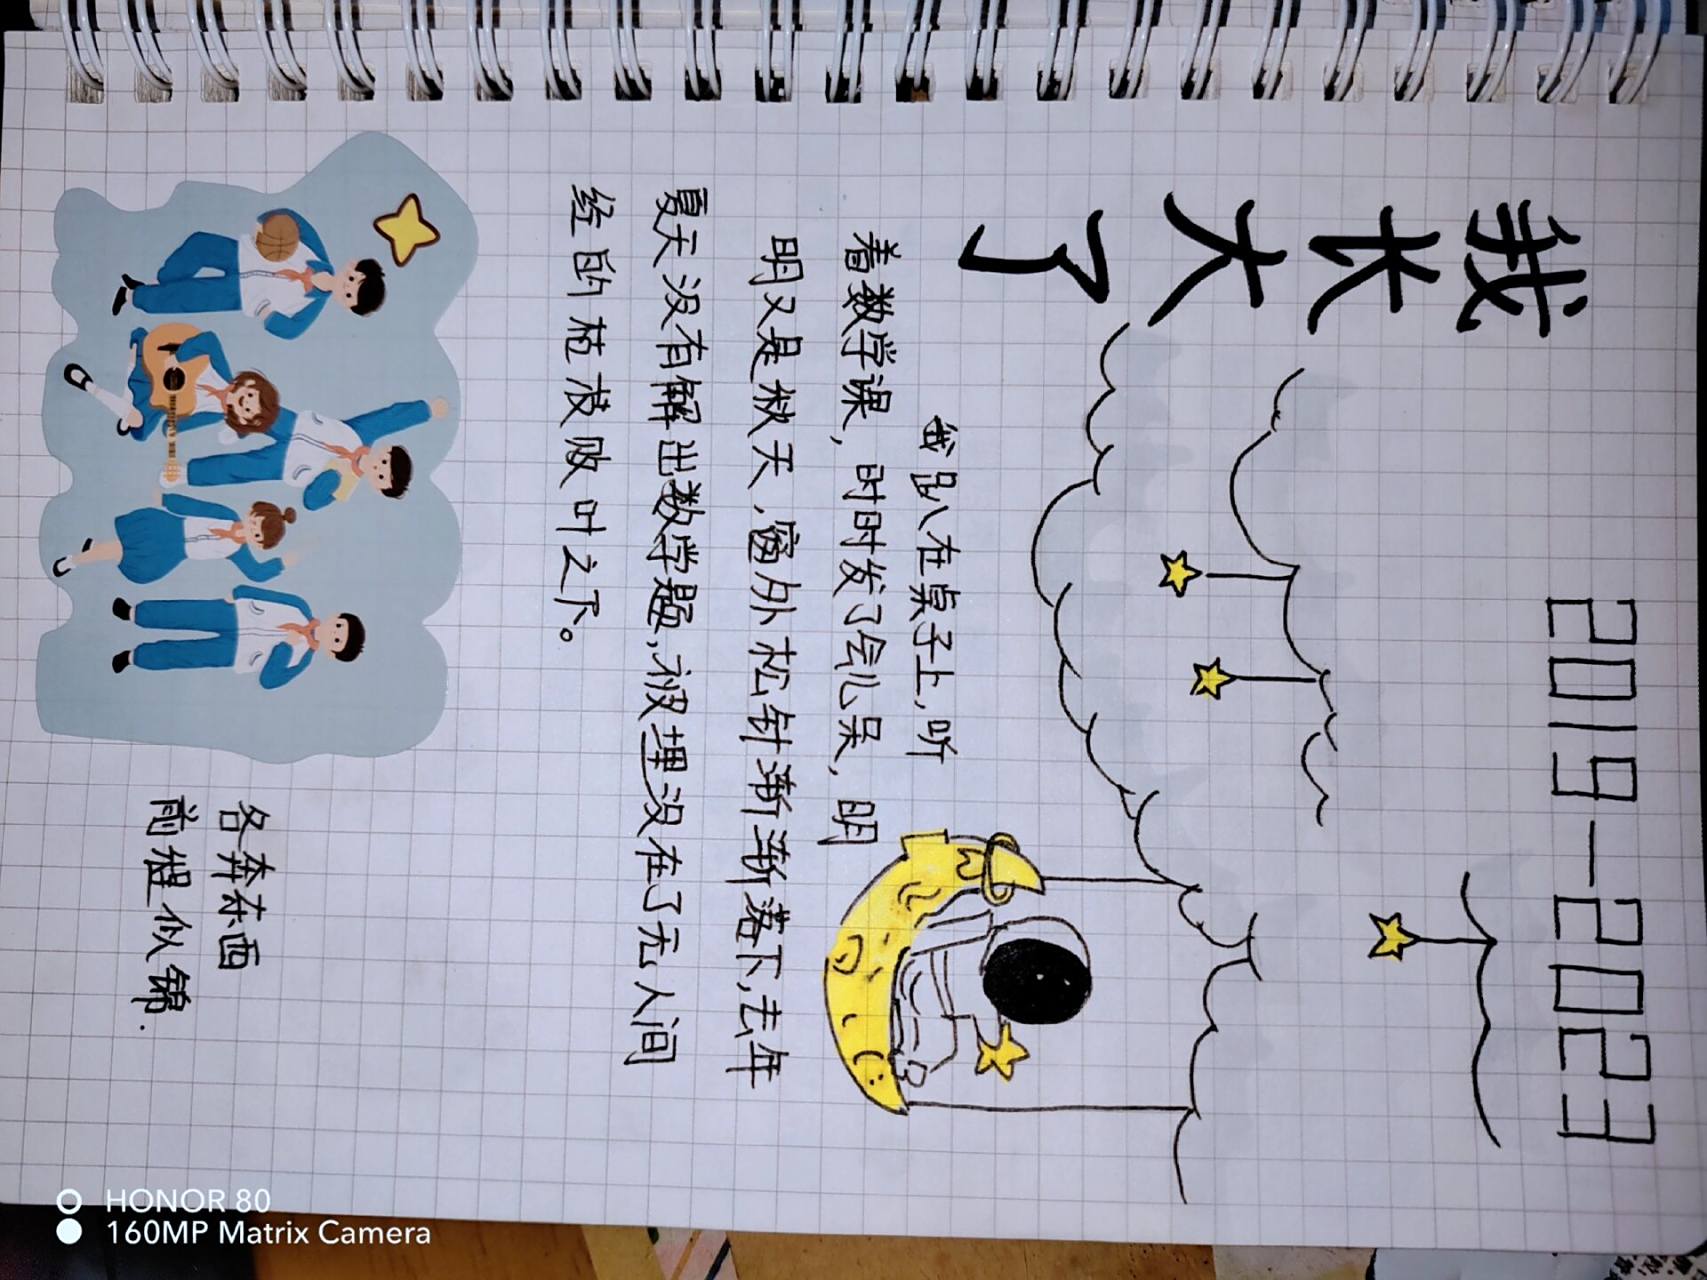 2019-2023
我长大了
我趴在桌子上,听
着数学课,时时发了会儿呆,明
明又是秋天,窗外松针渐渐落下,去年
夏天没有解出数学题,被埋没在了无人间
经的枯枝败叶之下。
各奔东西
前程似锦.
HONOR 80
160MP Matrix Camera